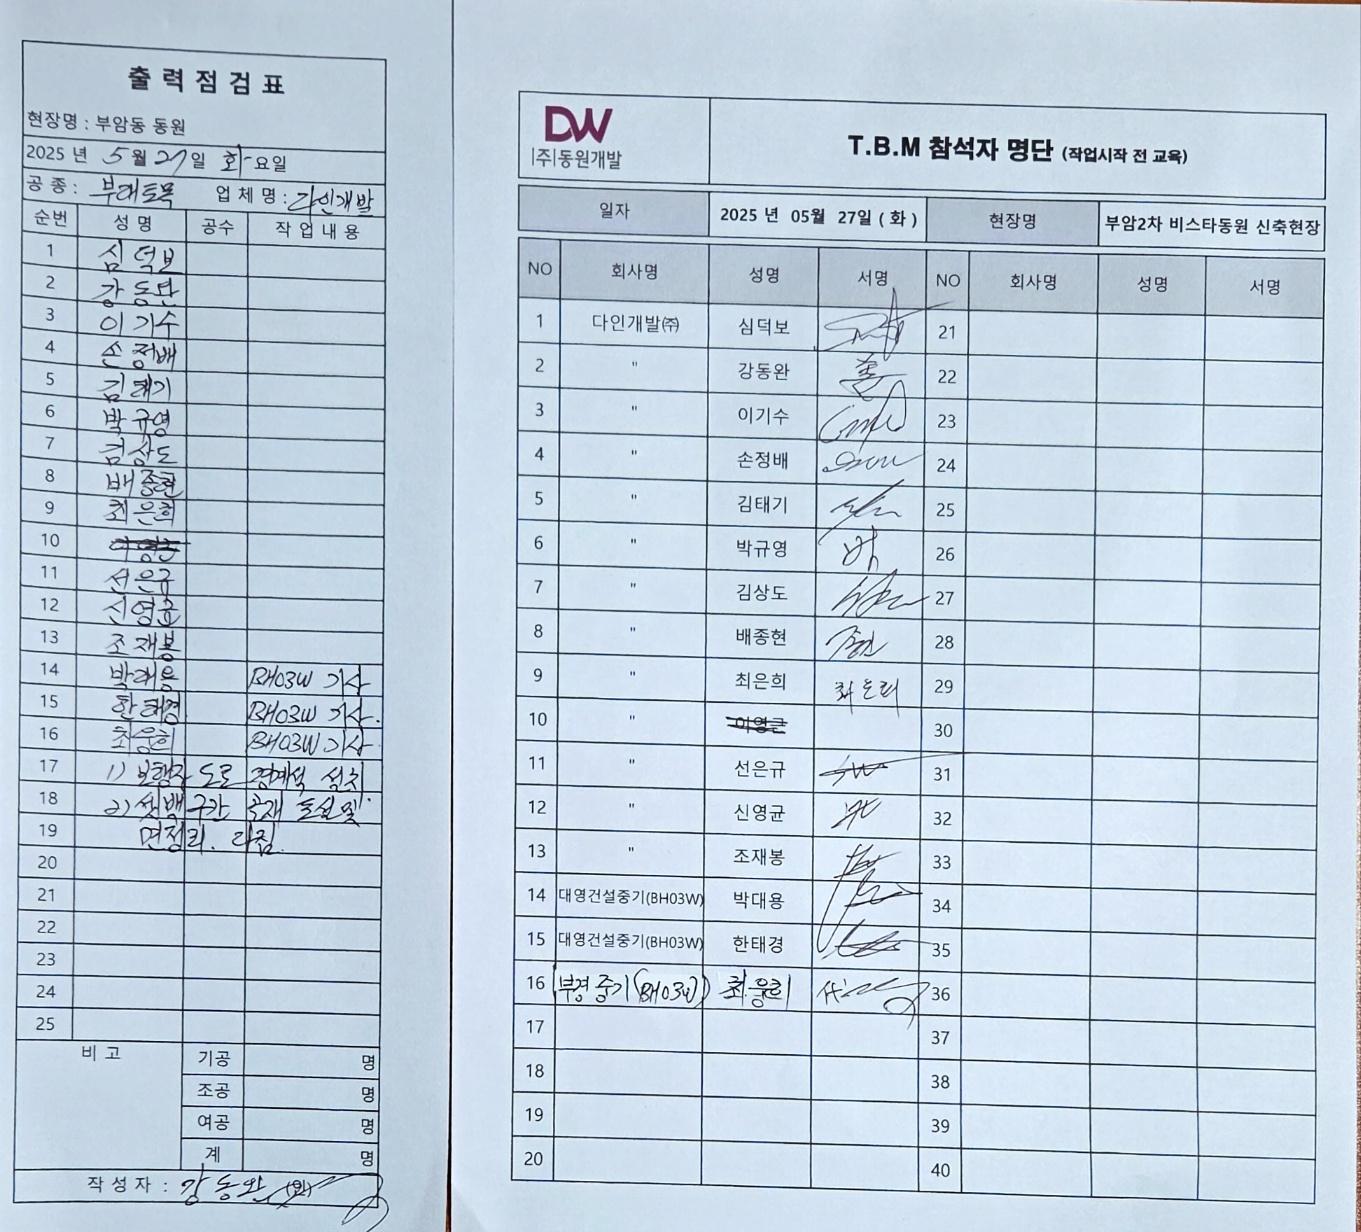 출력점검표
현장명 : 부암동 동원
2025 년 5 월 27 일 화 요일
공 종 : 부대토목 업 체 명 : 다인개발
순번 성 명 공수 작 업 내 용
1 심덕보
2 강동완
3 이기수
4 손정배
5 김태기
6 박규영
7 김상도
8 배종현
9 최은희
10 이영근
11 선은규
12 신영균
13 조재봉
14 박대용 BH03W 기사
15 한태경 BH03W 기사.
16 최웅희 BH03W 기사.
17 1) 보행자 도로 경계석 설치
18 2) 셋백구간 골재 포설 및
19 면정리. 다짐.
20
21
22
23
24
25
비 고
기공 명
조공 명
여공 명
계 명
작 성 자 : 강동완 (인)
DW
|주|동원개발
T.B.M 참석자 명단 (작업시작 전 교육)
일자 2025 년 05월 27일 ( 화 ) 현장명 부암2차 비스타동원 신축현장
NO 회사명 성명 서명 NO 회사명 성명 서명
1 다인개발㈜ 심덕보 21
2 " 강동완 22
3 " 이기수 23
4 " 손정배 24
5 " 김태기 25
6 " 박규영 박 26
7 " 김상도 27
8 " 배종현 종현 28
9 " 최은희 최은희 29
10 " 이영근 30
11 " 선은규 31
12 " 신영균 32
13 " 조재봉 33
14 대영건설중기(BH03W) 박대용 34
15 대영건설중기(BH03W) 한태경 35
16 부경중기(BH03W) 최웅희 36
17 37
18 38
19 39
20 40